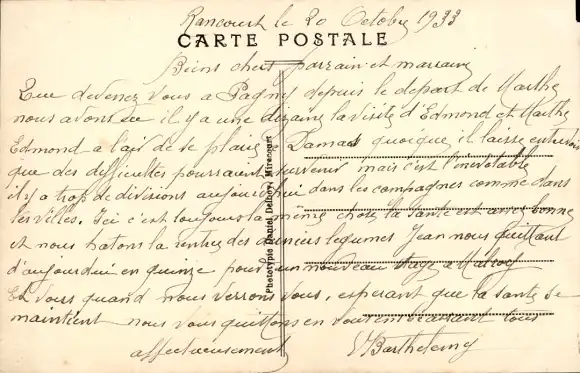 Rancourt le 20 Octobre 1933
CARTE POSTALE
Biens chers parrain et marraine
Que devenez vous a Pagny depuis le depart de Marthe
nous avons eu il y a une dizaine la visite d'Edmond et Marthe
Edmond a l'air de se plaire Damas quoique il laisse entrevoir
que des difficultés pourraient survenir mais c'est l'inévitable
il y a trop de divisions aujourd'hui dans les campagnes comme dans
les villes. Ici c'est toujours la même chose la santé est assez bonne
et nous hatons la rentree des derniers legumes Jean nous quittant
d'aujourdhui en quinze pour un nouveau stage a
Et vous quand nous verrons vous, esperant que la sante se
maintient nous vous quittons en vous embrassant tous
affectueusement
Barthelemy
Phototypie Daniel Delboy, Mirecourt